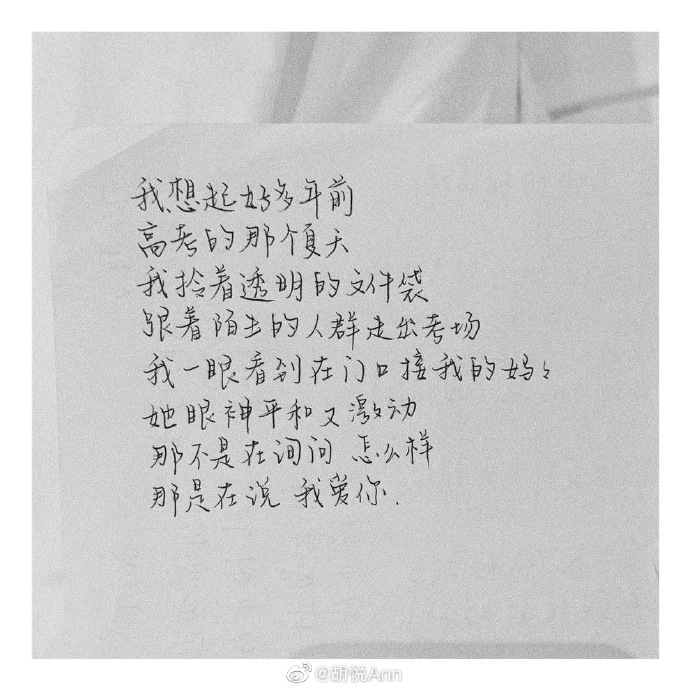 我想起好多年前
高考的那个夏天
我拎着透明的文件袋
跟着陌生的人群走出考场
我一眼看到在门口接我的妈々
她眼神平和又激动
那不是在询问 怎么样
那是在说 我爱你.
@胡悦Ann